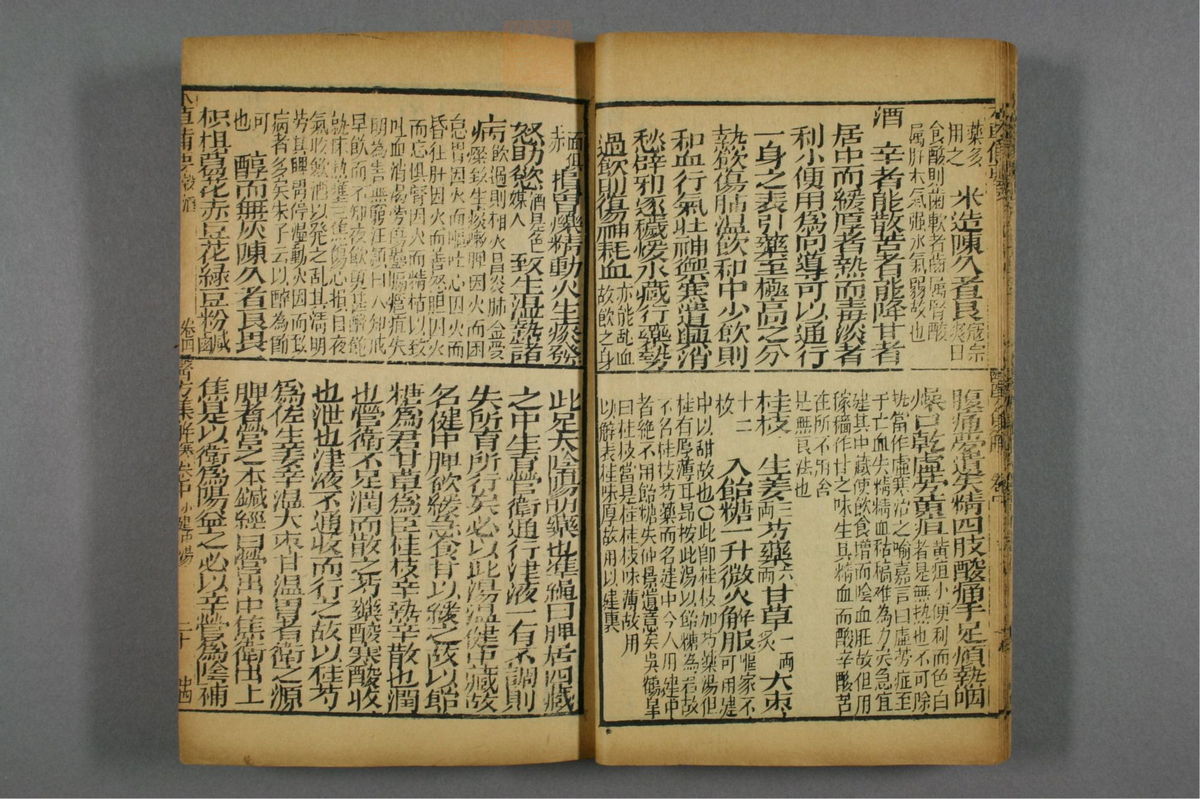 藥多
用之
米造陳久者良
寇宗
奭曰
食酸則齒軟者齒屬腎酸
屬肝木氣強水氣弱故也
酒
辛者能散苦者能降甘者
居中而緩厚者熱而毒淡者
利小便用為向導可以通行
一身之表引藥至極高之分
熱飲傷肺溫飲和中少飲則
和血行氣壯神禦寒遣興消
愁辟邪逐穢煖水藏行藥勢
過飲則傷神耗血
亦能亂血
故飲之身
面俱
赤
損胃爍精動火生痰發
怒助慾
酒是色
媒人
致生溫熱諸
病
飲過則相火昌炎肺金受
爍致生痰嗽脾因火而困
怠胃因火而嘔吐心因火而
昏狂肝因火而善怒膽因火
而忘懼腎因火而精枯以致
吐血消渴勞傷蠱膈癰疽失
明為害無窮汪穎曰人知戒
早飲而不知夜飲更甚醉飽
就床熱壅三焦傷心損目夜
氣收斂酒以發之亂其清明
勞其脾胃停濕動火因而致
病者多矣朱子云以醉為節
可
也
醇而無灰陳久者良畏
枳椇葛花赤豆花綠豆粉鹹
鹵
腹痛夢遺失精四肢酸痛手足煩熱咽
燥口乾虛勞黃疸
黃疸小便利而色白
者是無熱也不可除
熱當作虛寒治之喻嘉言曰虛勞症至
于亡血失精精血枯槁難為力矣急宜
建其中藏使飲食增而陰血旺故但用
稼穡作甘之味生其精血而酸辛鹹苦
在所不用舍
是無良法也
桂枝
生姜
三
兩
芍藥
六
兩
甘草
一兩
炙
大枣
十二
枚
入飴糖一升微火解服
嘔家不
可用建
中以甜故也〇此即桂枝加芍藥湯但
桂有厚薄耳昂按此湯以飴糖為君故
不名桂枝芍藥而名建中今人用建中
者絕不用飴糖失仲景遺意矣吳鶴皋
曰桂枝當是桂桂枝味薄故用
以解表桂味厚故用以建裏
此足太陰陽明藥也準繩曰脾居四藏
之中生育營衛通行津液一有不調則
失所育所行矣必以此湯溫健中藏故
名健中脾飲緩急食甘以緩之故以飴
糖為君甘草為臣桂枝辛熱辛散也潤
也營衛不足潤而散之芍藥酸寒酸收
也泄也津液不通收而行之故以桂芍
為佐生姜辛溫大枣甘溫胃者衛之源
脾者營之本鍼經曰營出中焦衛出上
焦是以衛為陽益之必以辛營為陰補